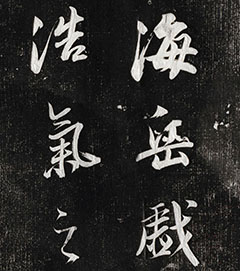 海岳戲
浩氣之